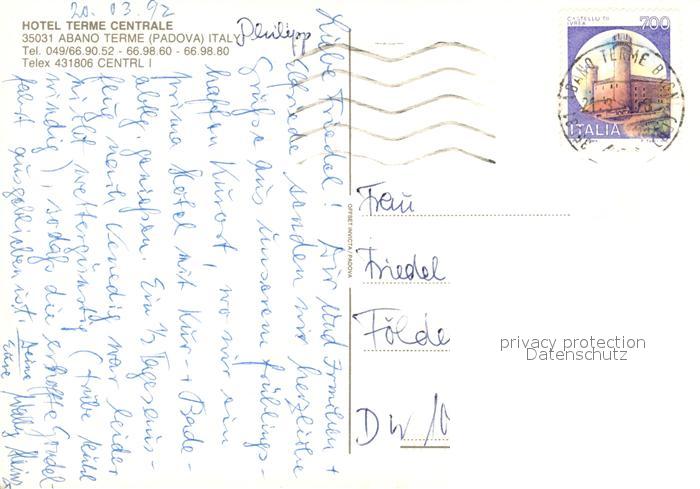 20. 03. 92
HOTEL TERME CENTRALE
35031 ABANO TERME (PADOVA) ITALY
Tel. 049/66.90.52 - 66.98.60 - 66.98.80
Telex 431806 CENTRL I
Philipp
Liebe Friedel! Dir und Familien +
Elfriede senden wir herzliche
Grüße aus unserem frühlings-
haften Kurort, wo wir ein
prima Hotel mit Kur- + Bade-
abtlg. genießen. Ein ½ Tagesaus-
flug nach Venedig war leider
nicht wettergünstig (trübe kühl
windig), sodaß die erhoffte Gondel-
fahrt ausgeblieben ist.
OFFSET INVICTA PADOVA
CASTELLO DI
IVREA
700
ITALIA
ABANO TERME
Frau
Friedel
Földe
privacy protection
Datenschutz